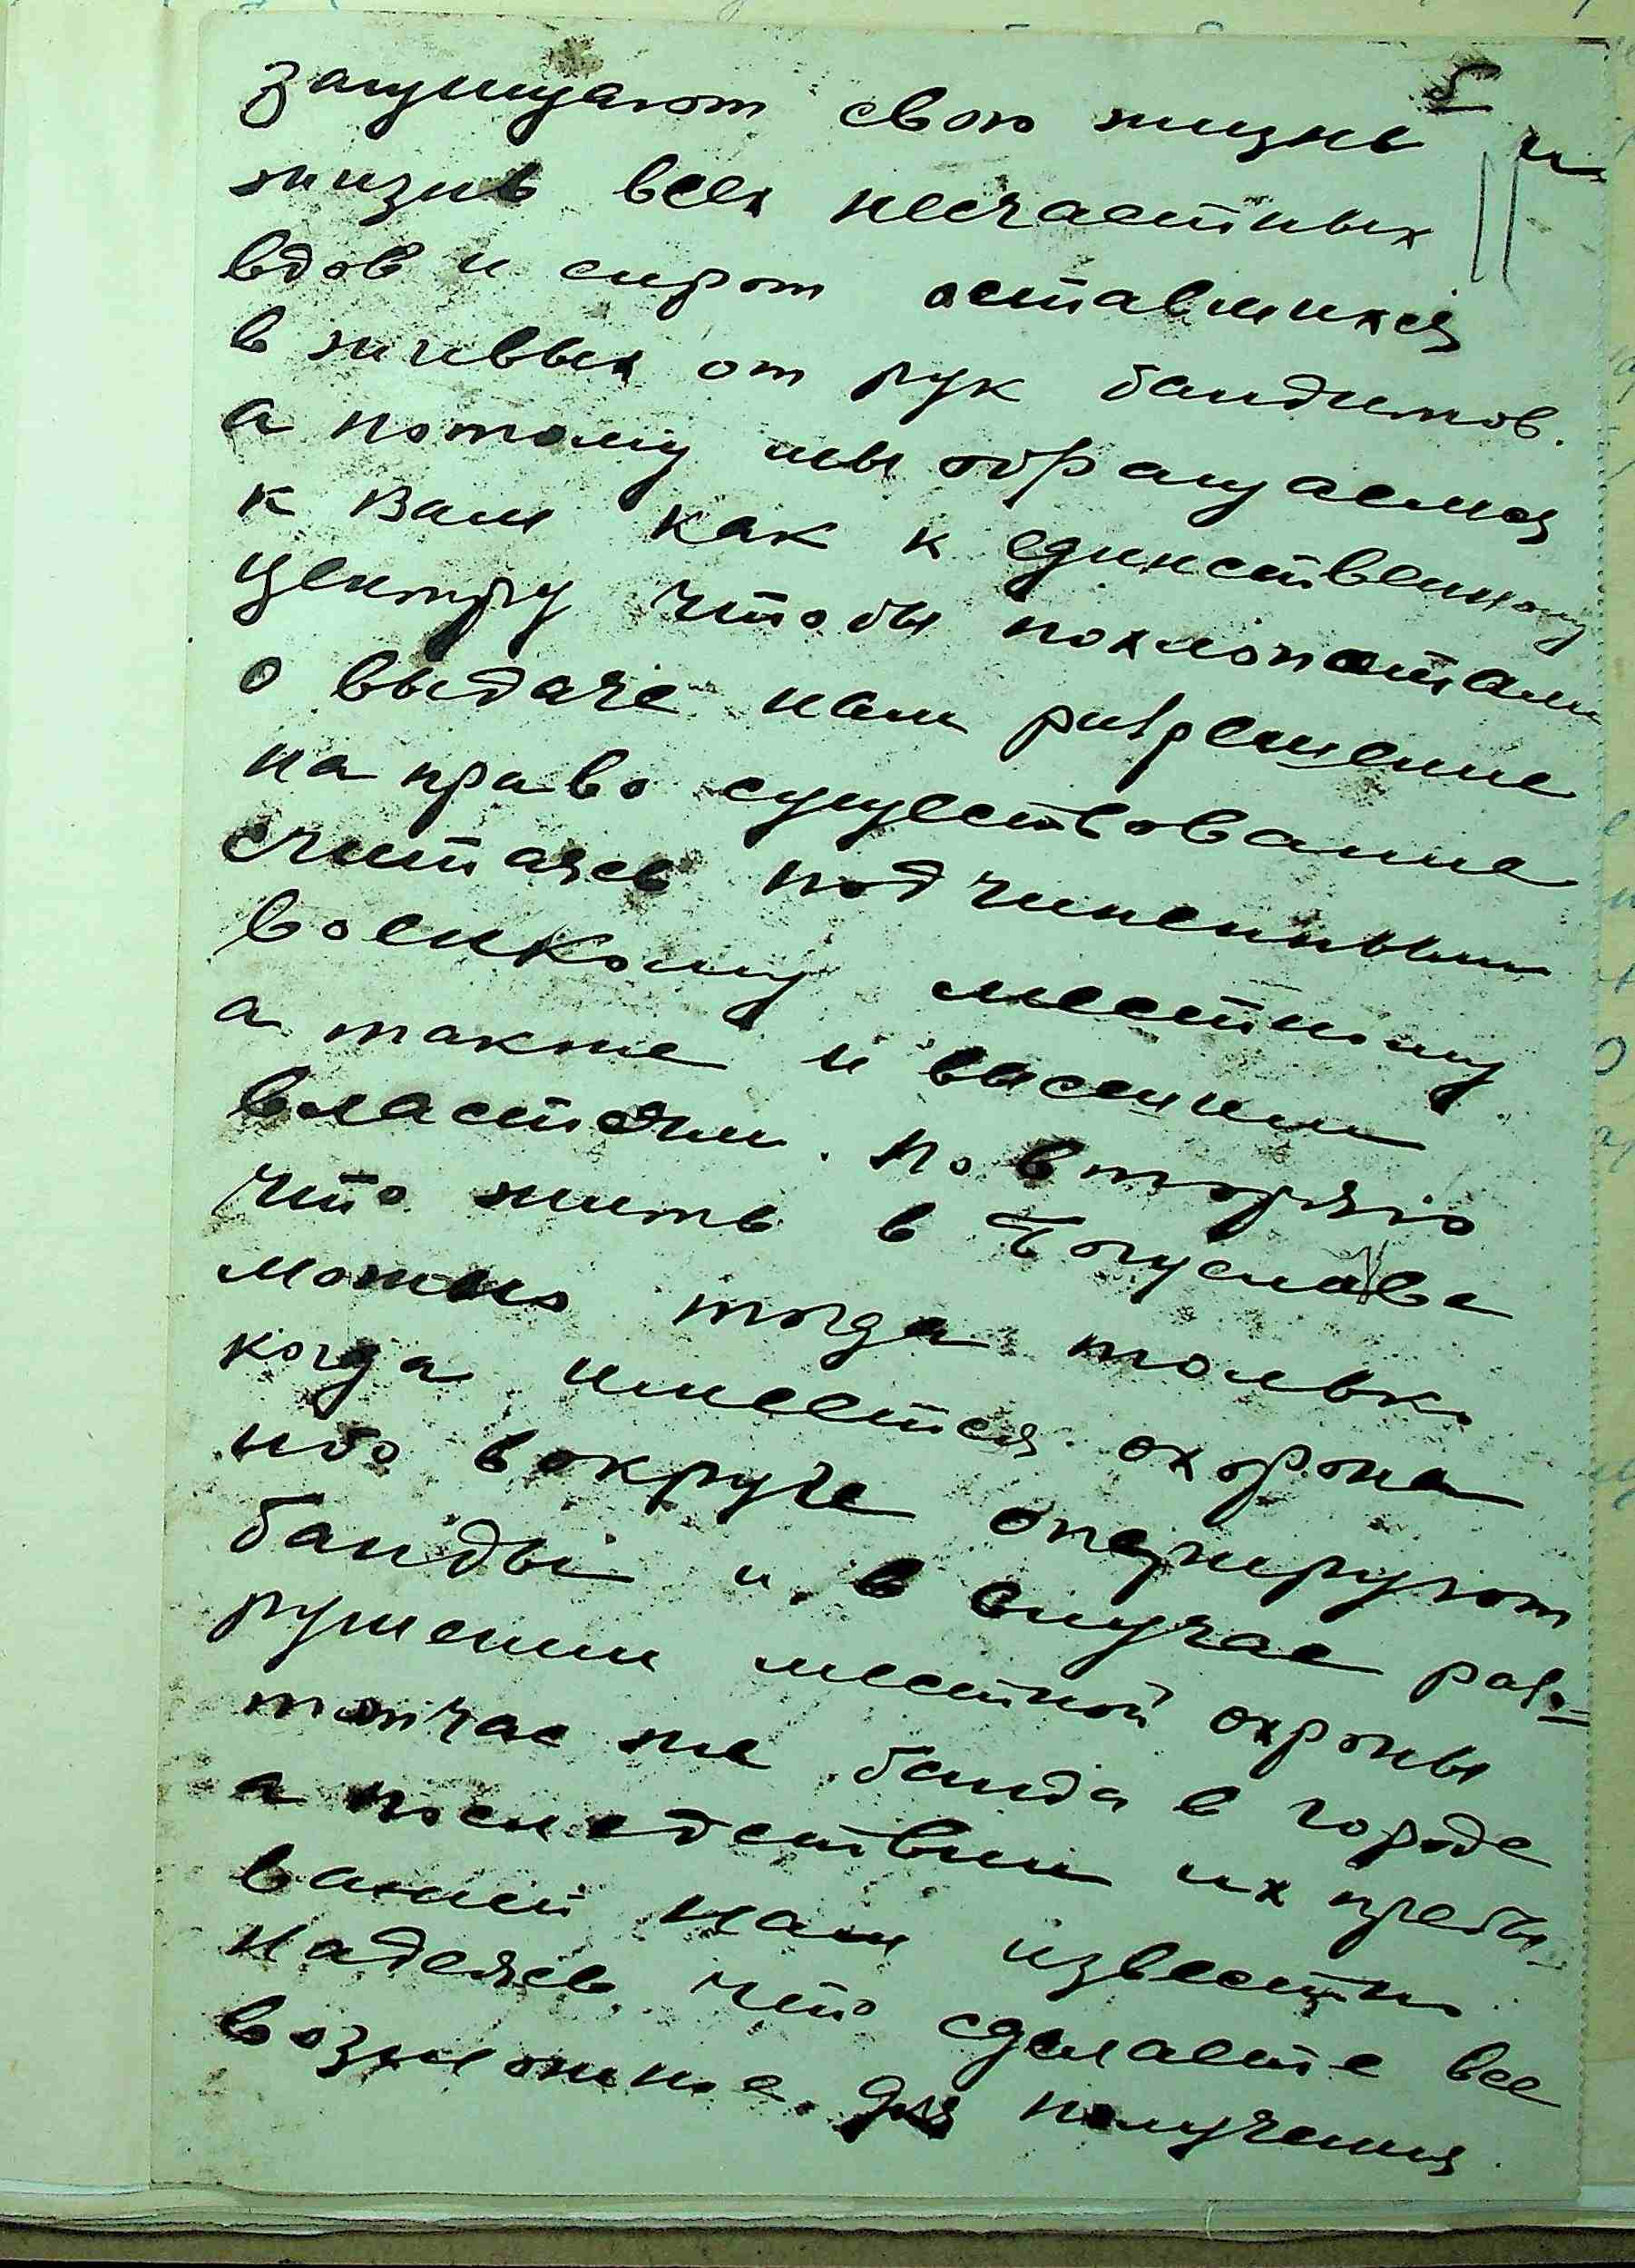 5
защищают свою жизнь и
жизнь всех несчастных
вдов и сирот оставшихся
в живых от рук бандитов.
а потому мы обращаемся
к Вам как к единственому
центру чтобы похлопотали
о выдаче нам разрешение
на право существование
считаясь подчиненным
военкому местному
а также и высшим
властям. Повторяю
что жить в Богуславе
можно тогда только
когда имеется охорона
ибо вокруге оперируют
банды и в случае разо=
ружении местной охроны
тотчас же банда в городе
а последствии их пребы-
ваней нам известно
Надеясь что сделаете все
возможное для получения